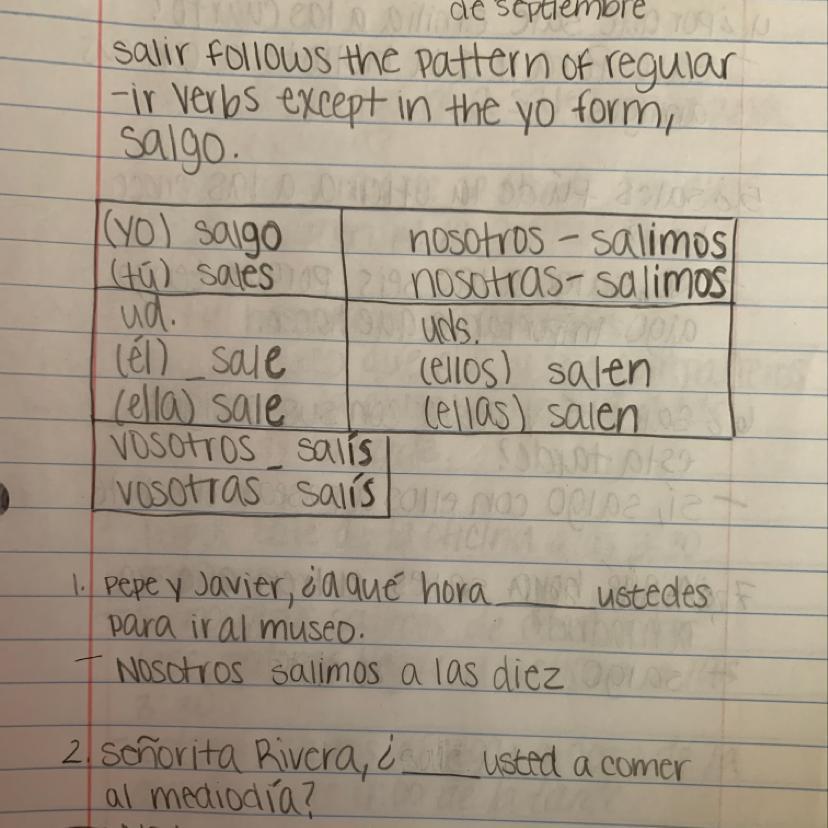 de septiembre
salir follows the pattern of regular
-ir verbs except in the yo form,
salgo.
(yo) salgo
(tú) sales
nosotros - salimos
nosotras- salimos
ud.
(él) _ sale
(ella) sale
uds.
(ellos) salen
(ellas) salen
vosotros _ salís
vosotras salís
1. Pepe y Javier, ¿a qué hora ____ ustedes
para ir al museo.
- Nosotros salimos a las diez
2. Señorita Rivera, ¿____ usted a comer
al mediodía?